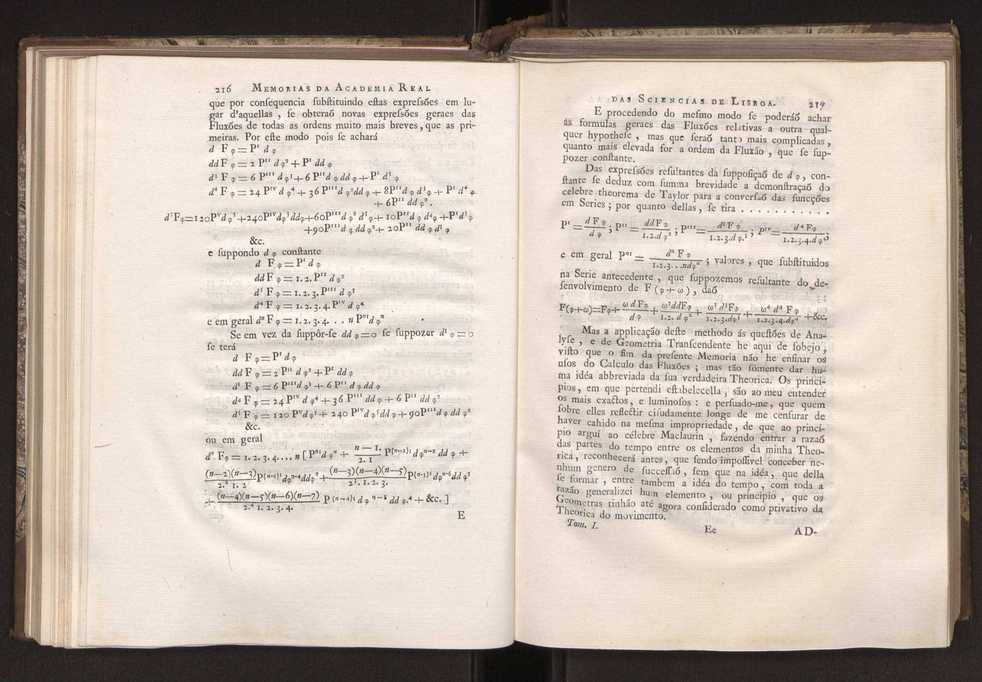 216 MEMORIAS DA ACADEMIA REAL
que por consequencia ſubſtituindo eſtas expreſsões em lu-
gar d'aquellas , ſe obteraõ novas expreſsões geraes das
Fluxões de todas as ordens muito mais breves, que as pri-
meiras. Por eſte modo pois ſe achará
d F φ = Pᴵ d φ
dd F φ = 2 Pᴵᴵ d φ² + Pᴵ dd φ
d³ F φ = 6 Pᴵᴵᴵ d φ³ + 6 Pᴵᴵ d φ dd φ + Pᴵ d³ φ
d⁴ F φ = 24 Pᴵⱽ d φ⁴ + 36 Pᴵᴵᴵ d φ² dd φ + 8Pᴵᴵ d φ d³ φ + Pᴵ d⁴ φ
+ 6Pᴵᴵ dd φ²
d⁵Fφ=120Pⱽd φ⁵ +240Pᴵⱽd φ³ddφ+60Pᴵᴵᴵd φ² d³ φ+ 10Pᴵⱽd φ d⁴φ +Pᴵd⁵ φ
+90Pᴵᴵᴵd φ dd φ²+ 20Pᴵᴵ dd φ d³ φ
&c.
e ſuppondo d φ conſtante
d F φ = Pᴵ d φ
dd F φ = 1. 2. Pᴵᴵ d φ²
d³ F φ = 1. 2. 3. Pᴵᴵᴵ d φ³
d⁴ F φ = 1. 2. 3. 4. Pᴵⱽ d φ⁴
e em geral dⁿ F φ = 1. 2. 3. 4. . . n Pⁿᴵ d φⁿ
Se em vez da ſuppôr-ſe dd φ = 0 ſe ſuppozer d³ φ = 0
ſe terá
d F φ = Pᴵ d φ
dd F φ = 2 Pᴵᴵ d φ² + Pᴵ dd φ
d³ F φ = 6 Pᴵᴵᴵd φ³ + 6 Pᴵᴵ d φ dd φ
d⁴ F φ = 24 Pᴵⱽ d φ⁴ + 36 Pᴵᴵᴵ dd φ + 6 Pᴵᴵ dd φ²
d⁵ F φ = 120 Pⱽd φ⁵ + 240 Pᴵⱽd φ³dd φ + 90Pᴵᴵᴵd φ dd φ²
&c.
ou em geral
dⁿ Fφ = 1. 2. 3. 4. . . . n [ Pⁿᴵ d φⁿ + (n — 1.)/(2. 1) P⁽ⁿ⁻¹⁾ᴵ d φⁿ⁻² dd φ +
(n—2)(n—3)/(2.² 1. 2) P⁽ⁿ⁻²⁾ᴵ d φⁿ⁻⁴dd φ² + (n—3)(n—4)(n—5)/(2³. 1. 2. 3.) P⁽ⁿ⁻³⁾ᴵ d φⁿ⁻⁶dd φ³
+ (n—4)(n—5)(n—6)(n—7)/(2.⁴ 1. 2. 3. 4.) P⁽ⁿ⁻⁴⁾ᴵ d φ ⁿ⁻⁸ dd φ.⁴ + &c. ]
E
DAS SCIENCIAS DE LISBOA. 219
E procedendo do meſmo modo ſe poderáõ achar
as formulas geraes das Fluxões relativas a outra qual-
quer hypotheſe , mas que ſeraõ tanto mais complicadas,
quanto mais elevada for a ordem da Fluxão , que ſe ſup-
pozer conſtante.
Das expreſsões reſultantes da ſuppoſiçaõ de d φ, con-
ſtante ſe deduz com ſumma brevidade a demonſtraçaõ do
célebre theorema de Taylor para a converſaõ das funcções
em Series ; por quanto dellas, ſe tira . . . . . . . . . . .
Pᴵ = d F φ/d φ ; Pᴵᴵ = ddF φ/1. 2.d φ² ; Pᴵᴵᴵ = d³ F φ/1. 2. 3.d φ.³ ; Pᴵⱽ = d⁴ Fφ/1. 2. 3. 4.d φ⁴ ;
e em geral Pⁿᴵ = dⁿ F φ/1. 2. 3. . . ndφⁿ ; valores , que ſubſtituidos
na Serie antecedente , que ſuppozemos reſultante do de-
ſenvolvimento de F ( φ + ω ) , daõ
F(φ+ω)=Fφ+ ω d Fφ/d φ + ω²ddFφ/1. 2. d φ² + ω³ d³Fφ/1. 2. 3.dφ³ + ω⁴ d⁴ F φ/1. 2. 3. 4.dφ⁴ +&c.
Mas a applicaçaõ deſte methodo ás queſtões de Ana-
lyſe , e de Geometria Tranſcendente he aqui de ſobejo,
viſto que o fim da preſente Memoria não he enſinar os
uſos do Calculo das Fluxões ; mas tão ſómente dar hu-
ma idéa abbreviada da ſua verdadeira Theorica. Os princi-
pios, em que pertendi eſtabelecella , são ao meu entender
os mais exactos, e luminoſos : e perſuado-me, que quem
ſobre elles reflectir ciſudamente longe de me cenſurar de
haver cahido na meſma impropriedade, de que ao princi-
pio argui ao célebre Maclaurin , fazendo entrar a razaõ
das partes do tempo entre os elementos da minha Theo-
rica, reconhecerá antes, que ſendo impoſſivel conceber ne-
nhum genero de ſucceſſiõ , ſem que na idéa , que della
ſe formar , entre tambem a idéa do tempo, com toda a
razão generalizei hum elemento , ou principio , que os
Geometras tinhão até agora conſiderado como privativo da
Theorica do movimento.
Tom. I. Ee AD-